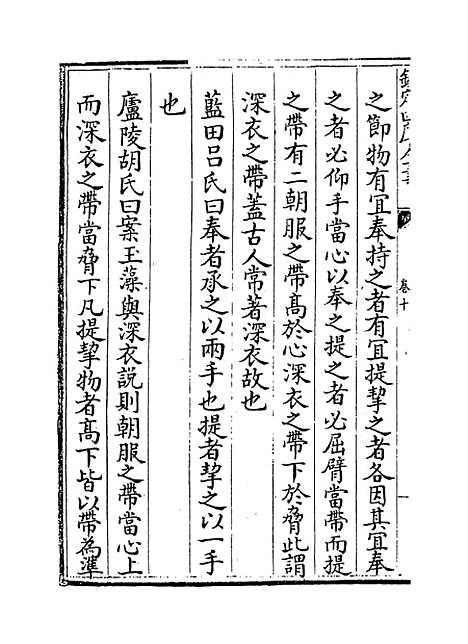 欽定四庫全書
卷十
之節物有宜奉持之者有宜提挈之者各因其宜奉
之者必仰手當心以奉之提之者必屈臂當帶而提
之帶有二朝服之帶高於心深衣之帶下於脅此謂
深衣之帶蓋古人常著深衣故也
藍田呂氏曰奉者承之以兩手也提者挈之以一手
也
廬陵胡氏曰案玉藻與深衣說則朝服之帶當心上
而深衣之帶當脅下凡提挈物者高下皆以帶為準